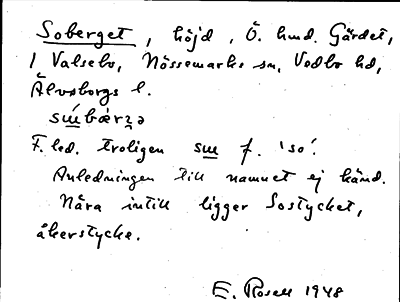 Soberget, höjd, Ö. hmd. Gärdet,
1 Valsebo, Nössemarks sn, Vedbo hd,
Älvsborgs l.
F. led. troligen su f. 'so'.
Anledningen till namnet ej känd.
Nära intill ligger Sostycket,
åkerstycke.
E. Rosell 1948